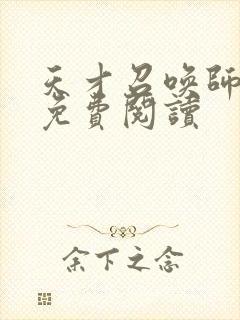 天才召喚師
免費閱讀
余下之念